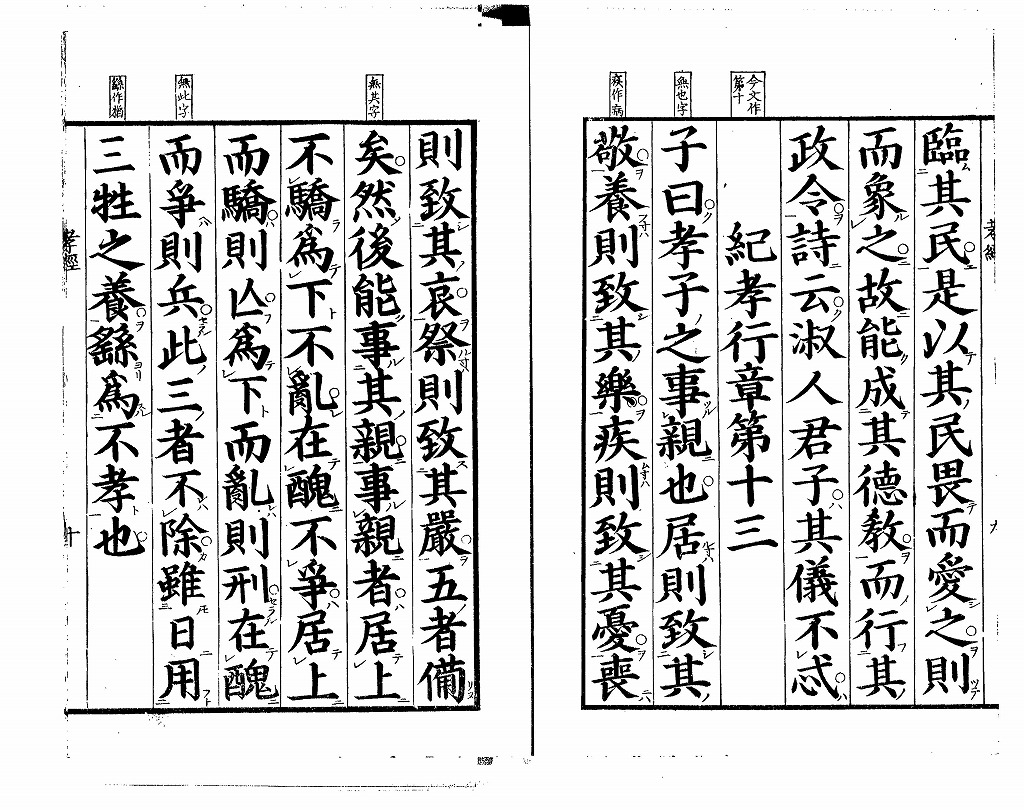 今文作第十
無也字
疾作病
臨其民是以其民畏而愛之則
而象之故能成其德教而行其
政令詩云淑人君子其儀不忒
紀孝行章第十三
子曰孝子之事親也居則致其
敬養則致其樂疾則致其憂喪
孝經
九
無其字
無此字
繇作猶
則致其哀祭則致其嚴五者備
矣然後能事其親事親者居上
不驕爲下不亂在醜不爭居上
而驕則亾爲下而亂則刑在醜
而爭則兵此三者不除雖日用
三牲之養繇爲不孝也
孝經
十